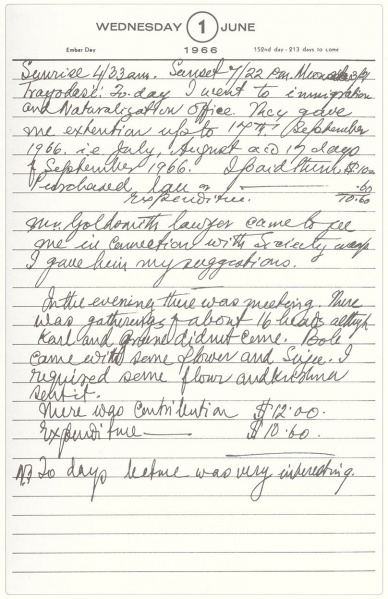 WEDNESDAY 1 JUNE
Ember Day 1966 152nd day - 213 days to come
Sunrise 4/33 am. Sunset 7/22 P.m. Moonrise
Trayodasi: To-day I went to immigration
and Naturalization Office. They gave
me extention up to 17th September
1966. i.e July, August and 17 days
of September 1966. I paid them $10.00
Purchased .60
Expenditure. 10.60
Mr. Goldsmith lawyer came to see
me in connection with society
I gave him my suggestions.
In the evening there was meeting. There
was gatherings of about 16 heads although
Karl and did not come.
came with some flower and Sujee. I
required some flour and Krishna
sent it.
There was contribution $12.00.
Expenditure — $10.60.
N.B To days lecture was very interesting.